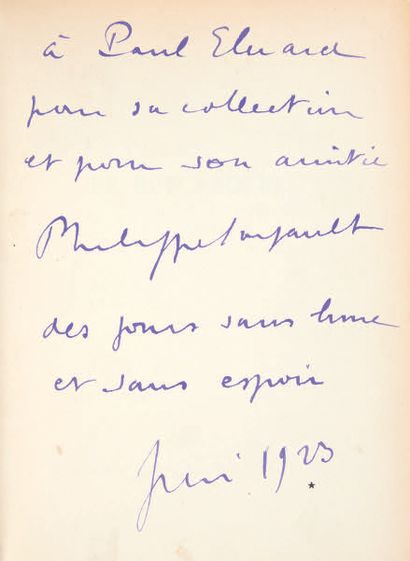 à Paul Eluard
pour sa collection
et pour son amitié
Philippe Soupault
des jours sans lune
et sans espoir
Juin 1923